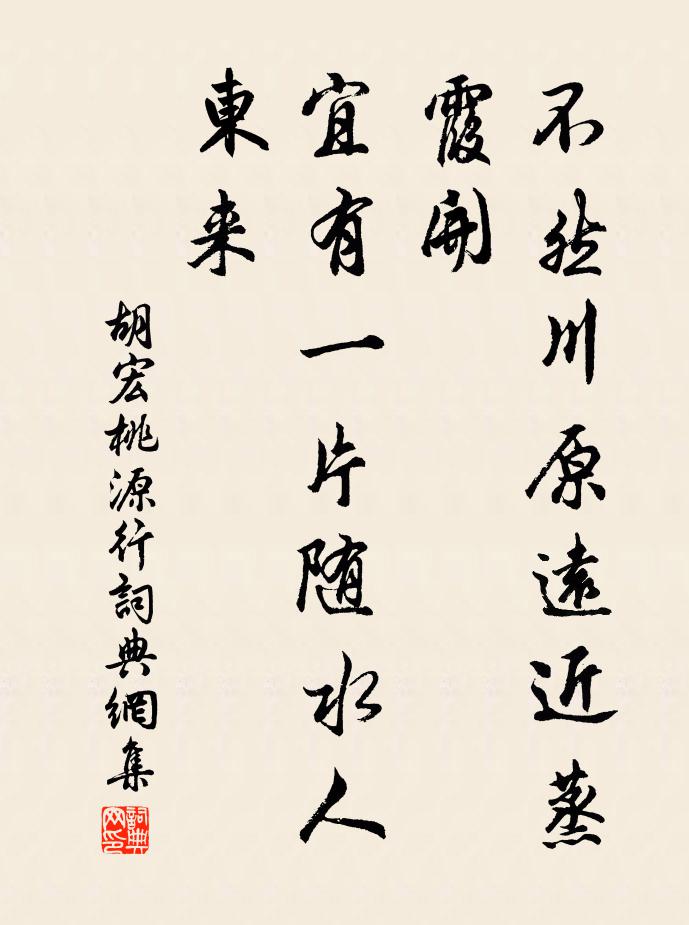 不然川原遠近蒸
霞開
宜有一片随水人
東来
胡宏桃源行詞典網集
詞典网印